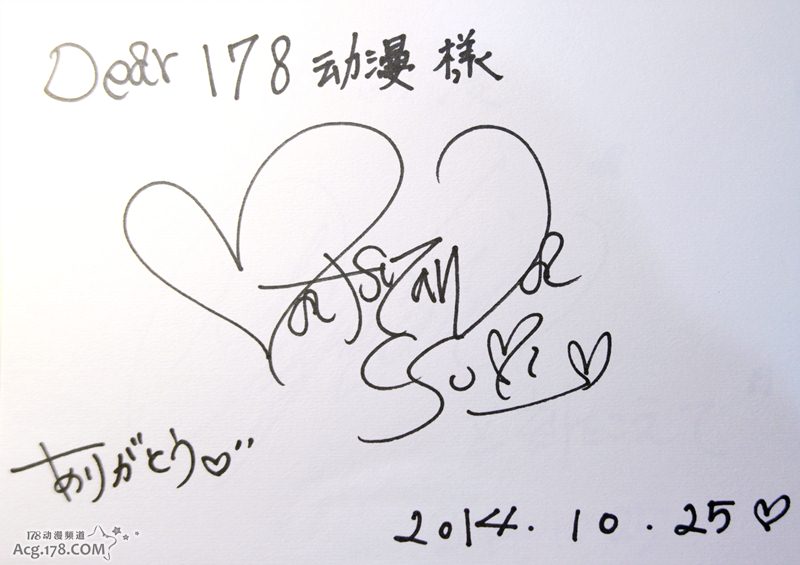 Dear 178 动漫 様
Matsuzawa
Suki
ありがとう♡"
2014.10.25♡
178动漫频道
Acg.178.COM